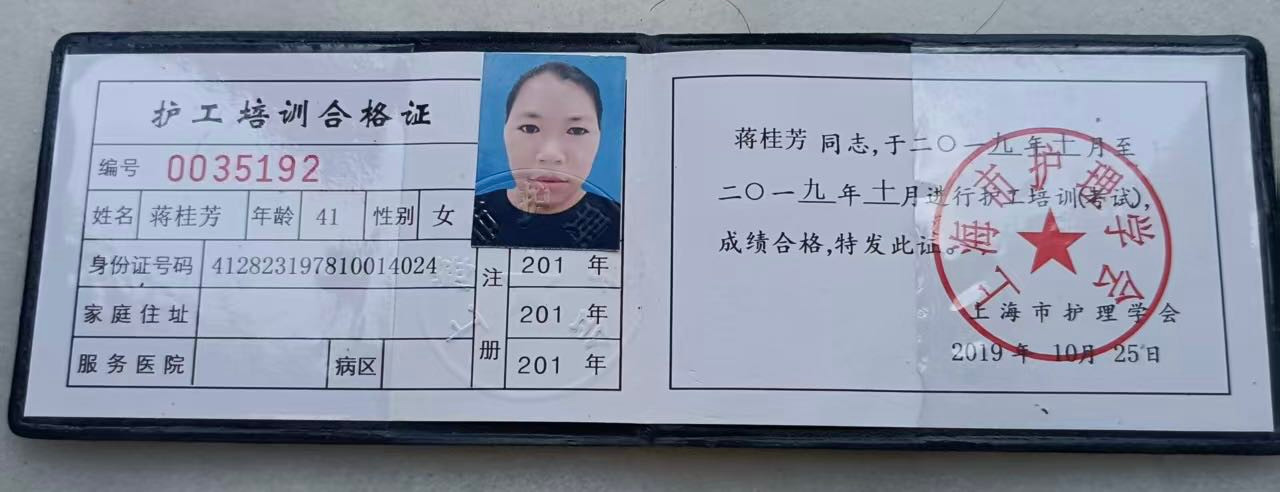 护工培训合格证
编号 0035192
姓名 蒋桂芳 年龄 41 性别 女
身份证号码 412823197810014024
家庭住址
服务医院 病区
注册
201 年
201 年
201 年
蒋桂芳 同志,于二〇一九年十月至
二〇一九年十月进行护工培训(考试),
成绩合格,特发此证。
上海市护理学会
上海市护理学会
2019年 10月 25日